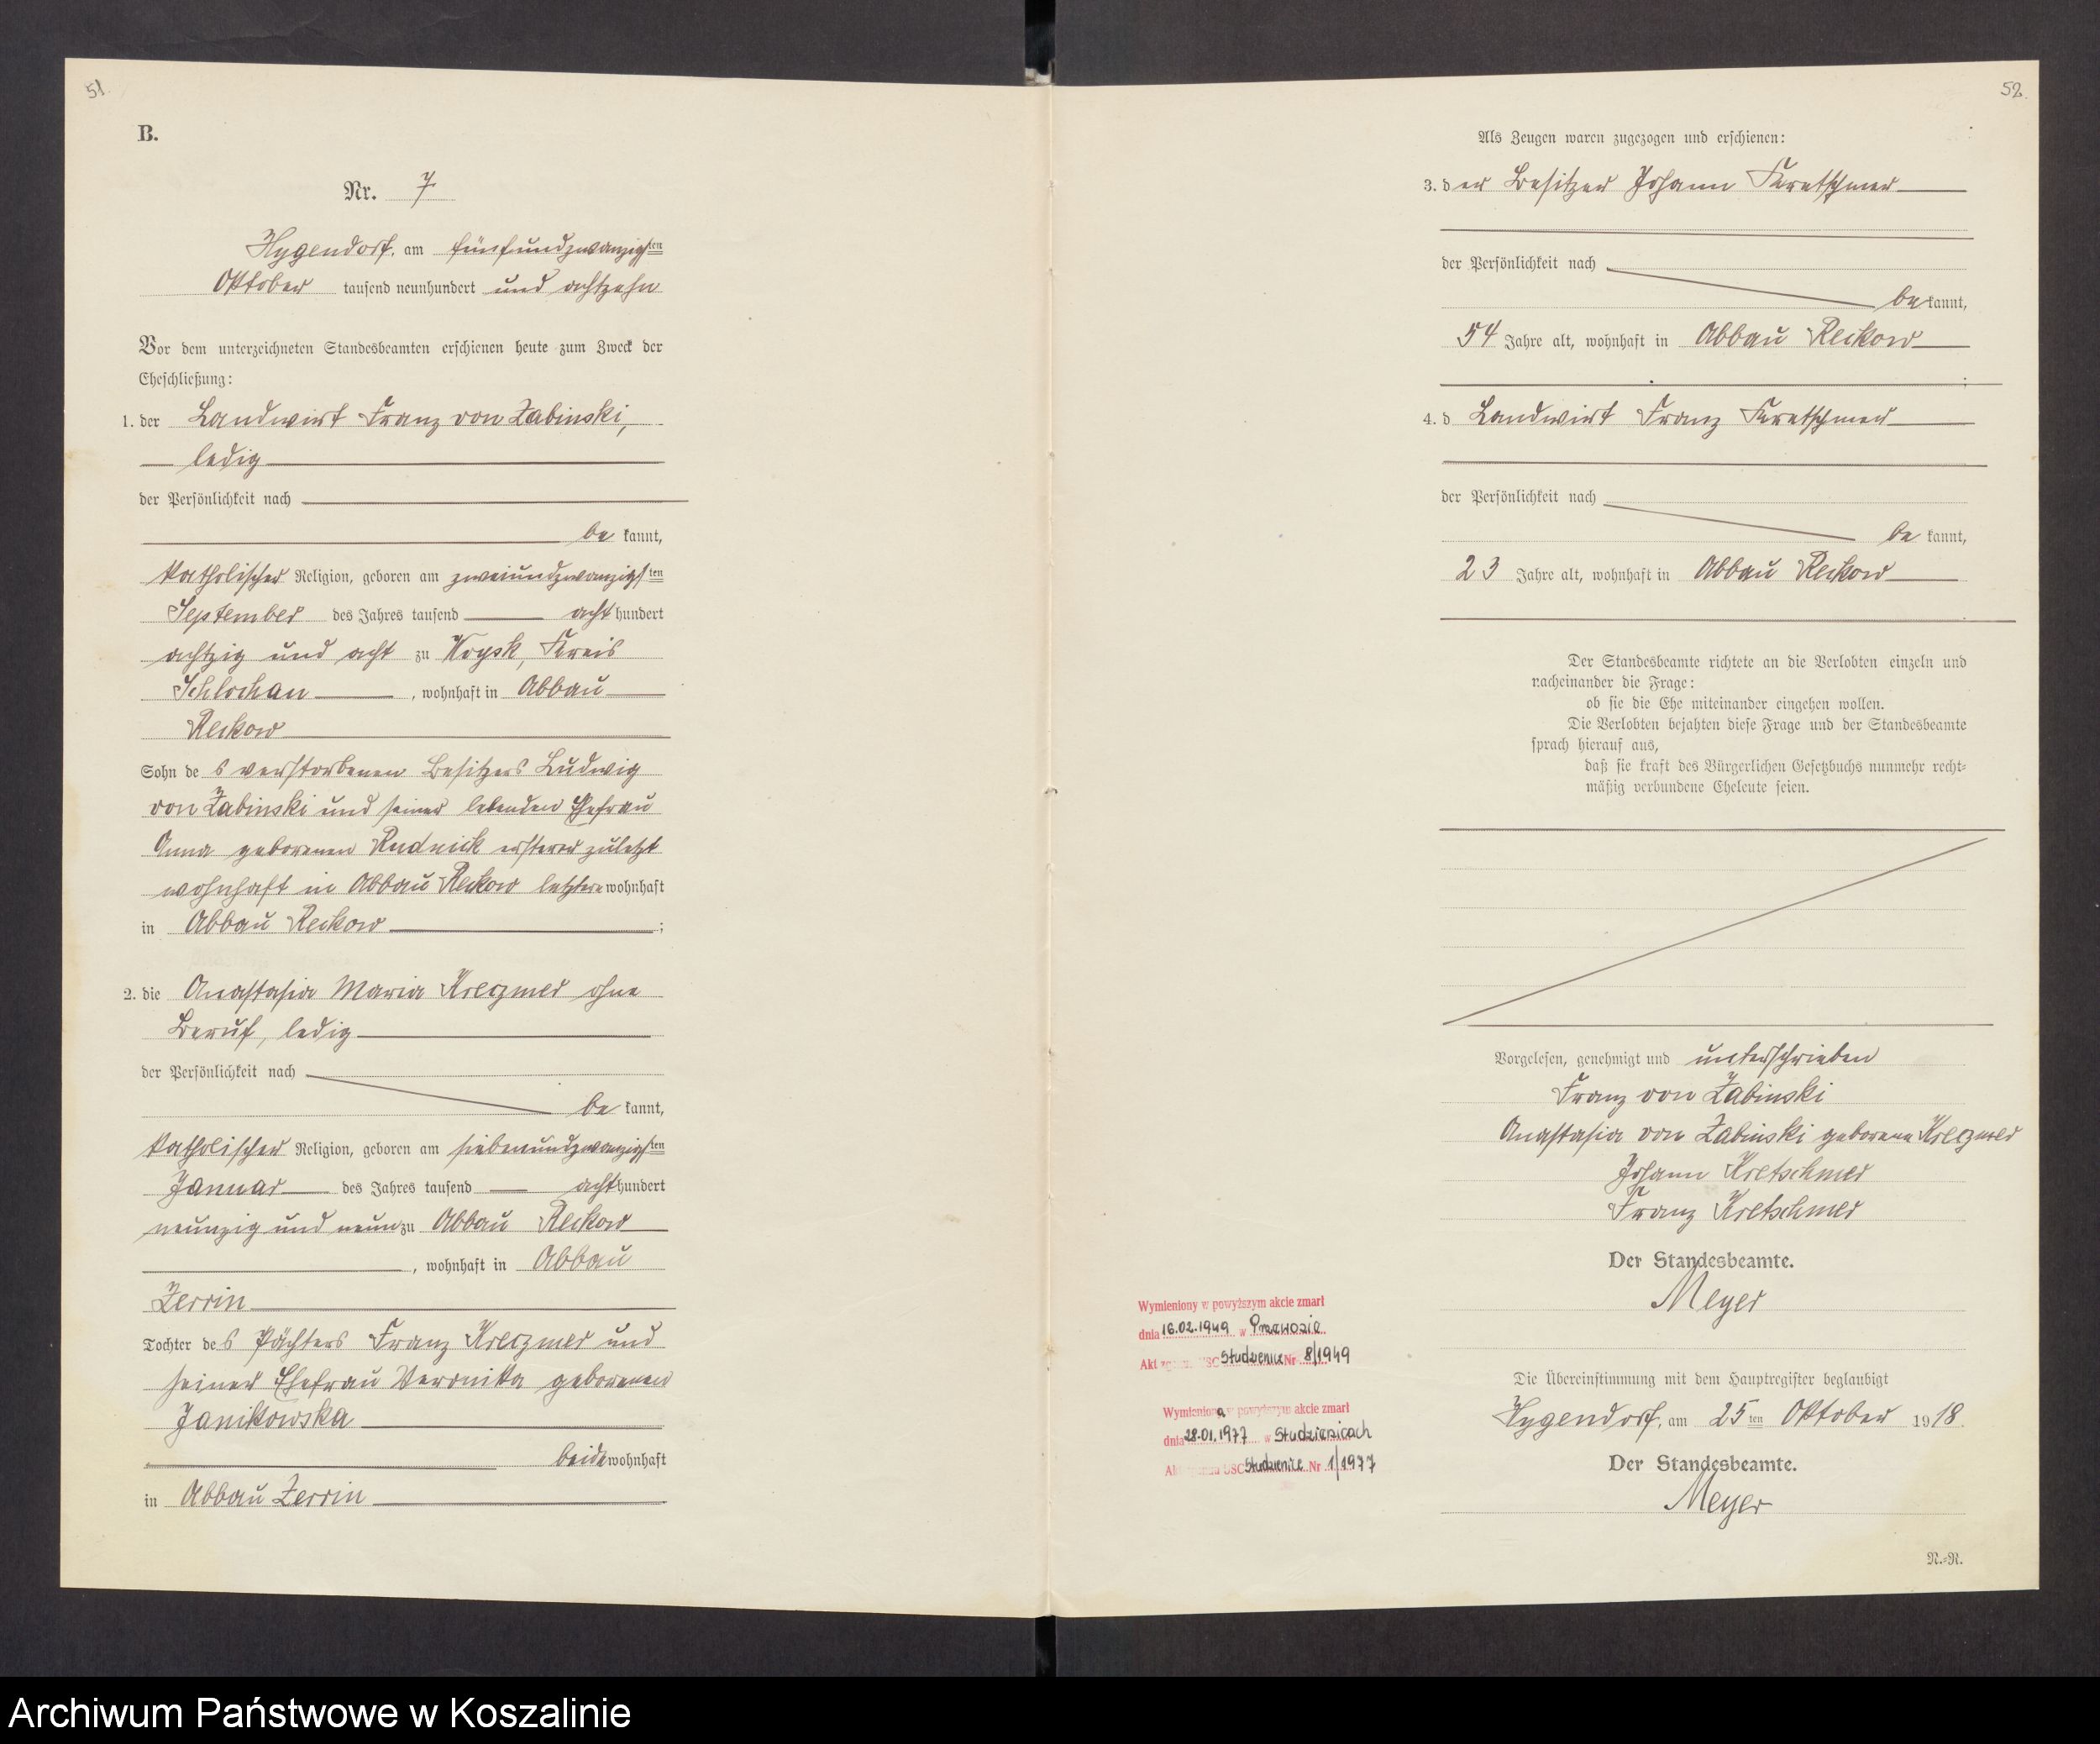 51.
B.
Nr. 7
Hygendorf, am fünfundzwanzigsten
Oktober tausend neunhundert und achtzehn
Vor dem unterzeichneten Standesbeamten erschienen heute zum Zweck der
Eheschließung:
1. der Landwirt Franz von Zabinski,
ledig
der Persönlichkeit nach
be kannt,
katholischer Religion, geboren am zweiundzwanzigsten
September des Jahres tausend acht hundert
achtzig und acht zu Kreis
Schlochau, wohnhaft in Abbau
Reckow
Sohn des verstorbenen Besitzers Ludwig
von Zabinski und seiner lebenden Ehefrau
Anna geborenen Rudnick ersterer zuletzt
wohnhaft in Abbau Reckow letztere wohnhaft
in Abbau Reckow;
2. die Anastasia Maria Kreczmer ohne
Beruf, ledig
der Persönlichkeit nach
be kannt,
katholischer Religion, geboren am siebenundzwanzigsten
Januar des Jahres tausend acht hundert
neunzig und neun zu Abbau Reckow
, wohnhaft in Abbau
Zerrin
Tochter des Pächters Franz Kreczmer und
seiner Ehefrau Veronika geborenen
Janikowska
beide wohnhaft
in Abbau Zerrin
52.
Als Zeugen waren zugezogen und erschienen:
3. der Besitzer Johann Kretschmer
der Persönlichkeit nach
be kannt,
54 Jahre alt, wohnhaft in Abbau Reckow
;
4. d Landwirt Franz Kretschmer
der Persönlichkeit nach
be kannt,
23 Jahre alt, wohnhaft in Abbau Reckow
Der Standesbeamte richtete an die Verlobten einzeln und
nacheinander die Frage:
ob sie die Ehe miteinander eingehen wollen.
Die Verlobten bejahten diese Frage und der Standesbeamte
sprach hierauf aus,
daß sie kraft des Bürgerlichen Gesetzbuchs nunmehr recht=
mäßig verbundene Eheleute seien.
Vorgelesen, genehmigt und unterschrieben
Franz von Zabinski
Anastasia von Zabinski geborene Kreczmer
Johann Kretschmer
Franz Kretschmer
Der Standesbeamte.
Meyer
Wymieniony w powyższym akcie zmarł
dnia 16.02.1949 w Przewozie
Akt USC Studzienice Nr 8/1949
Wymieniona w powyższym akcie zmarł
dnia 28.01.1977 w Studzienicach
Akt USC Studzienice Nr 1/1977
Die Übereinstimmung mit dem Hauptregister beglaubigt
Hygendorf, am 25ten Oktober 1918.
Der Standesbeamte.
Meyer
N.=N.
Archiwum Państwowe w Koszalinie